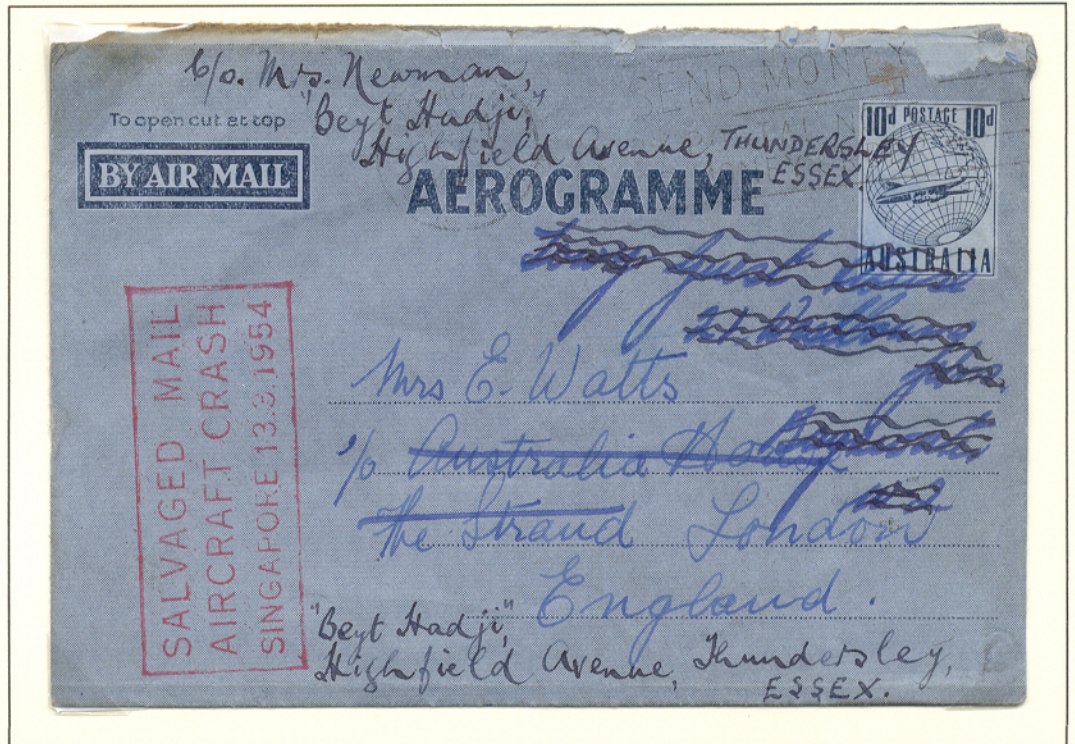 c/o. Mrs. Newman,
"Beyt Hadji,"
Highfield Avenue, THUNDERSLEY
ESSEX.
SEND MONEY
To open cut at top
BY AIR MAIL
AEROGRAMME
10d POSTAGE 10d
AUSTRALIA
SALVAGED MAIL
AIRCRAFT CRASH
SINGAPORE 13.3.1954
Mrs E. Watts
c/o Australia House
The Strand London
England.
"Beyt Hadji,"
Highfield Avenue, Thundersley,
ESSEX.